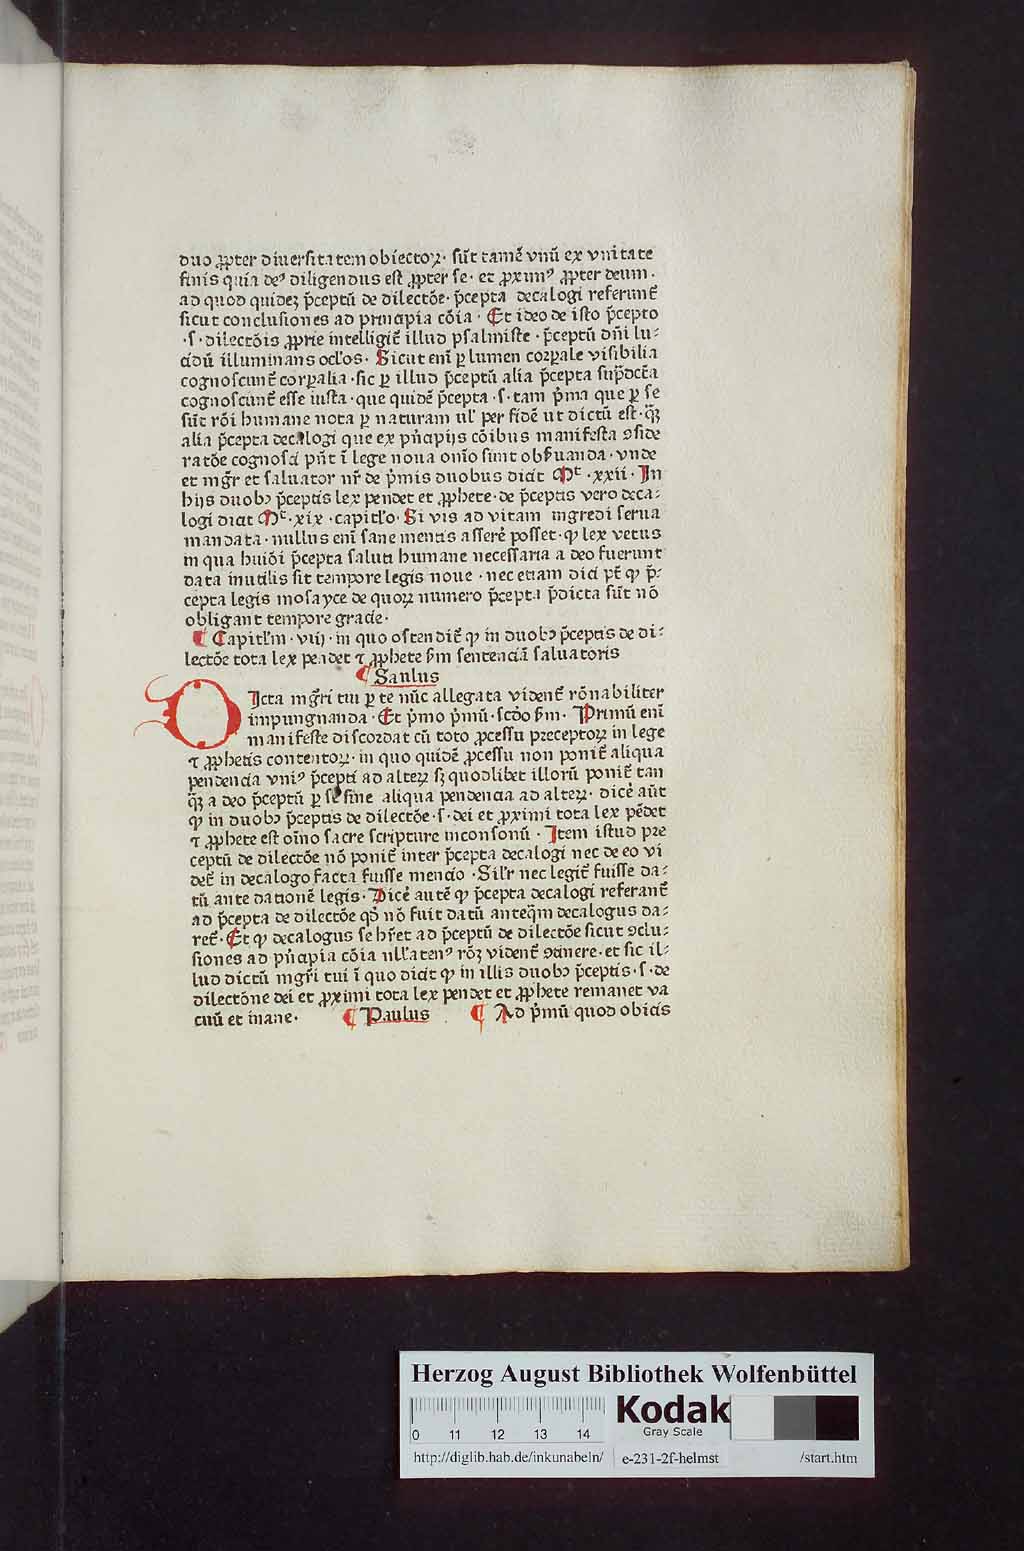 duo ꝓpter diuersitatem obiectoꝝ· sūt tamē vnū ex vnitate
finis quia deꝰ diligendus est ꝓpter se· et ꝓximꝰ ꝓpter deum·
ad quod quidez p̄ceptū de dilectōe· p̄cepta decalogi referunt̄
sicut conclusiones ad principia cōia· Et ideo de isto p̄cepto
·s· dilectōis ꝓprie intelligit̄ illud psalmiste· p̄ceptū dn̄i lu-
cidū illuminans ocl'os· Sicut enī ꝑ lumen corꝑale visibilia
cognoscunt̄ corꝑalia· sic ꝑ illud p̄ceptū alia p̄cepta sup̄dcta
cognoscunt̄ esse iusta· que quidē p̄cepta ·s· tam p̄ma que ꝑ se
sūt rōi humane nota ꝑ naturam ul' per fidē ut dictū est· qꝫ
alia p̄cepta decalogi que ex pn̄cipijs cōibus manifesta ꝯside
ratōe cognosci pn̄t ī lege noua om̄o sunt obſ̄uanda· vnde
et mgr̄ et saluator nr̄ de p̄mis duobus dicit Mᵗ ·xxii· In
hijs duobꝫ p̄ceptis lex pendet et ꝓphete· de p̄ceptis vero deca-
logi dicit Mᵗ·xix· capitl'o· Si vis ad vitam ingredi serua
mandata· nullus enī sane mentis asserē posset· ꝙ lex vetus
in qua huiōi p̄cepta saluti humane necessaria a deo fuerunt
data inutilis sit tempore legis noue· nec etiam dici pt̄ ꝙ p̄-
cepta legis mosayce de quoꝝ numero p̄cepta p̄dicta sūt nō
obligant tempore gracie·
¶ Capitl'm· viij· in quo ostendit̄ ꝙ in duobꝫ p̄ceptis de di-
lectōe tota lex pendet ⁊ ꝓphete ẜm sentenciā saluatoris
¶ Saulus
DIcta mgr̄i tui ꝑ te nūc allegata vident̄ rōnabiliter
impungnanda· Et p̄mo p̄mū· scdo ẜm· Primū enī
manifeste discordat cū toto ꝓcessu preceptoꝝ in lege
⁊ ꝓphetis contentoꝝ· in quo quidē ꝓcessu non ponit̄ aliqua
pendencia vniꝰ p̄cepti ad alteꝝ sꝫ quodlibet illorū ponit̄ tan
qꝫ a deo p̄ceptū ꝑ se sine aliqua pendencia ad alteꝝ· dicē aūt
ꝙ in duobꝫ p̄ceptis de dilectōe·s· dei et ꝓximi tota lex pēdet
⁊ ꝓphete est oīno sacre scripture inconsonū· Item istud pre
ceptū de dilectōe nō ponit̄ inter p̄cepta decalogi nec de eo vi
det̄ in decalogo facta fuisse mencio· Sil'r nec legit̄ fuisse da-
tū ante dationē legis· Dicē autē ꝙ p̄cepta decalogi referant̄
ad p̄cepta de dilectōe qd̓ nō fuit datū anteqm̄ decalogus da-
ret̄· Et ꝙ decalogus se hr̄et ad p̄ceptū de dilectōe sicut ꝯclu-
siones ad pn̄cipia cōia ull'atenꝰ rōꝫ vident̄ ꝯtinere· et sic il-
lud dictū mgr̄i tui ī quo dicit ꝙ in illis duobꝫ p̄ceptis·s· de
dilectōne dei et ꝓximi tota lex pendet et ꝓphete remanet va
cuū et inane· ¶ Paulus ¶ Ad p̄mū quod obicis
Herzog August Bibliothek Wolfenbüttel
0 11 12 13 14
Kodak
Gray Scale
http://diglib.hab.de/inkunabeln/ e-231-2f-helmst /start.htm